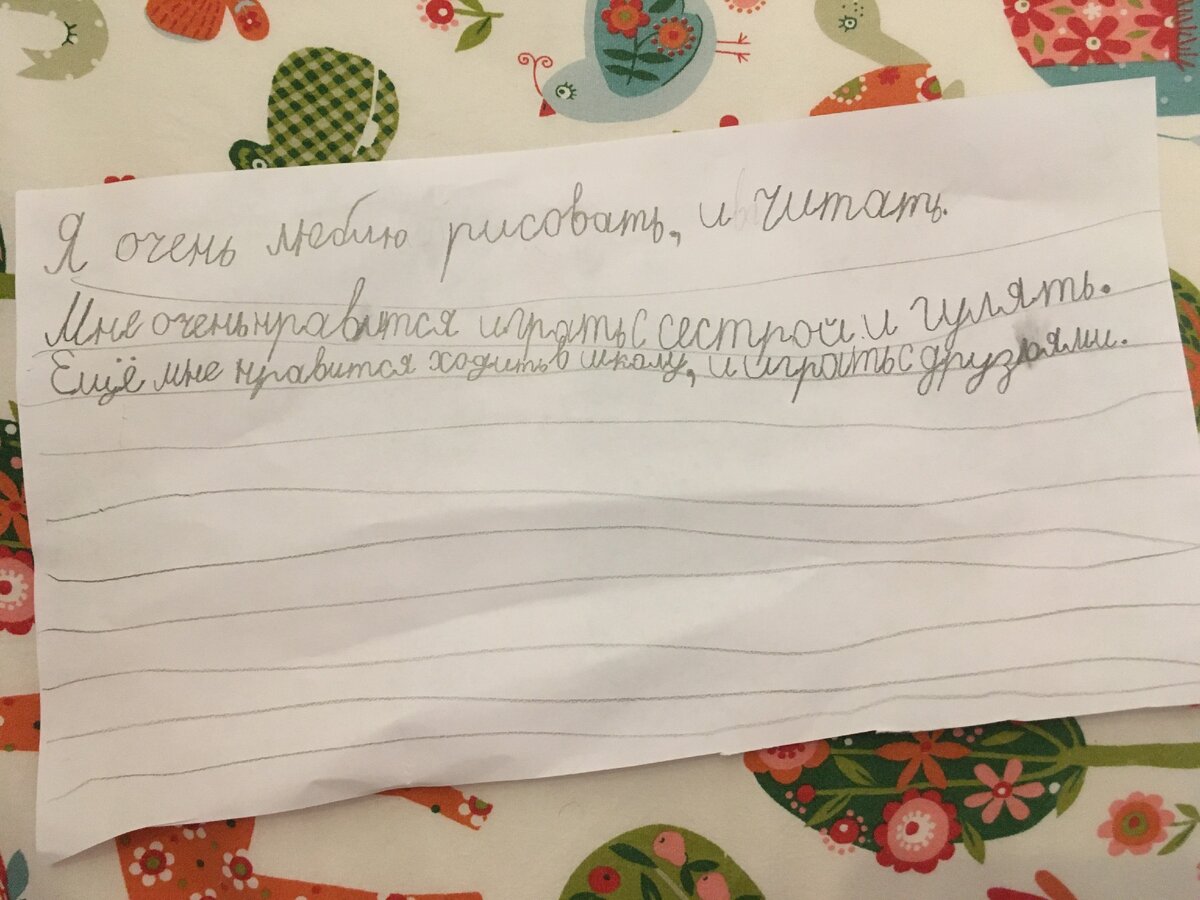 Я очень люблю рисовать, и читать.
Мне очень нравится играть с сестрой и гулять.
Ещё мне нравится ходить в школу, и играть с друзьями.